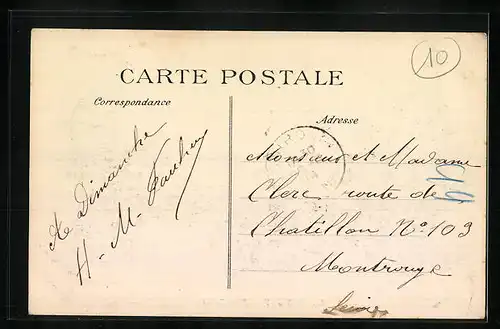 10
CARTE POSTALE
Correspondance
Adresse
A Dimanche
H - M -
Monsieur et Madame
Clerc route de
Chatillon No 103
Montrouge
Seine